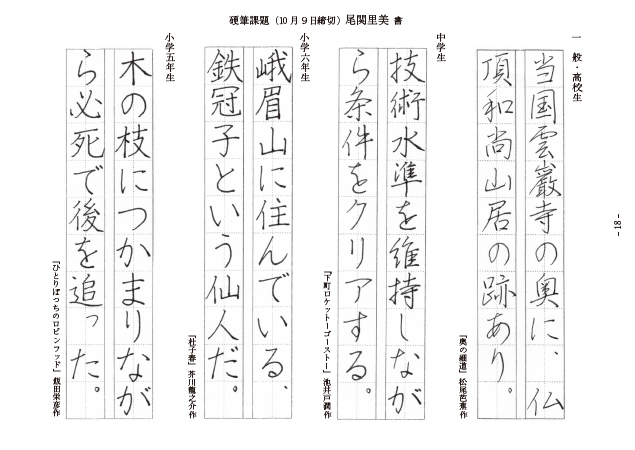 硬筆課題（10月9日締切）尾関里美 書
一般・高校生
当国雲巌寺の奥に、仏
頂和尚山居の跡あり。
『奥の細道』松尾芭蕉作
中学生
技術水準を維持しなが
ら条件をクリアする。
『下町ロケット－ゴースト－』池井戸潤作
小学六年生
峨眉山に住んでいる、
鉄冠子という仙人だ。
『杜子春』芥川龍之介作
小学五年生
木の枝につかまりなが
ら必死で後を追った。
『ひとりぼっちのロビンフッド』飯田栄彦作
- 18 -